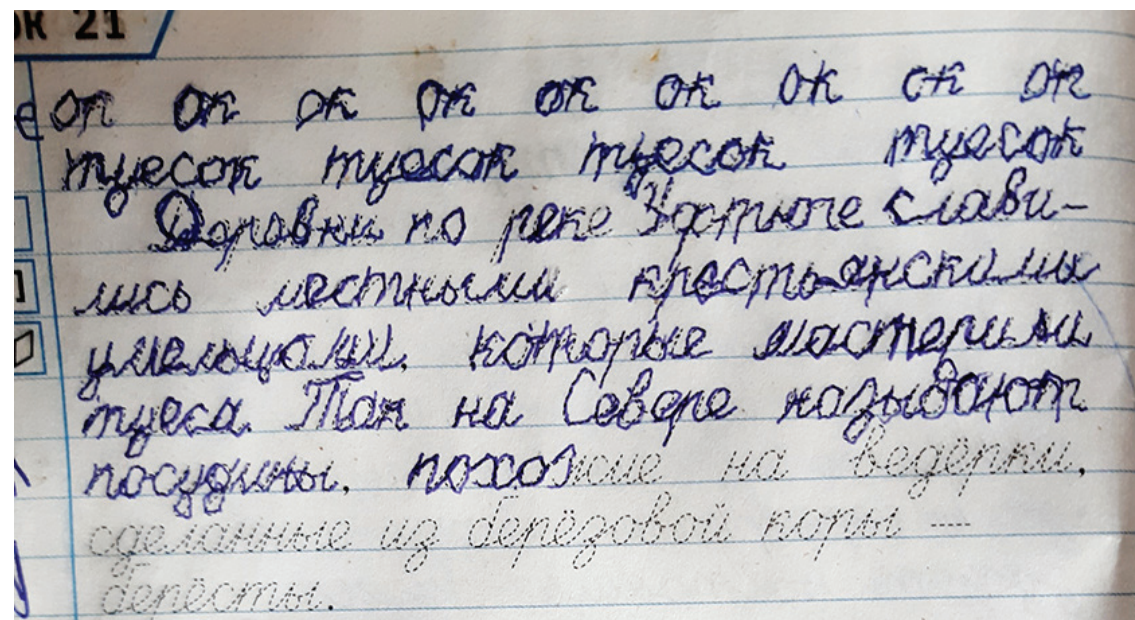 ОК 21
ок ок ок ок ок ок ок ок ок
туесок туесок туесок туесок
Деревни по реке Уфтюге слави-
лись местными крестьянскими
умельцами, которые мастерили
туеса. Так на Севере называют
посудины, похожие на ведёрки,
сделанные из берёзовой коры —
берёсты.